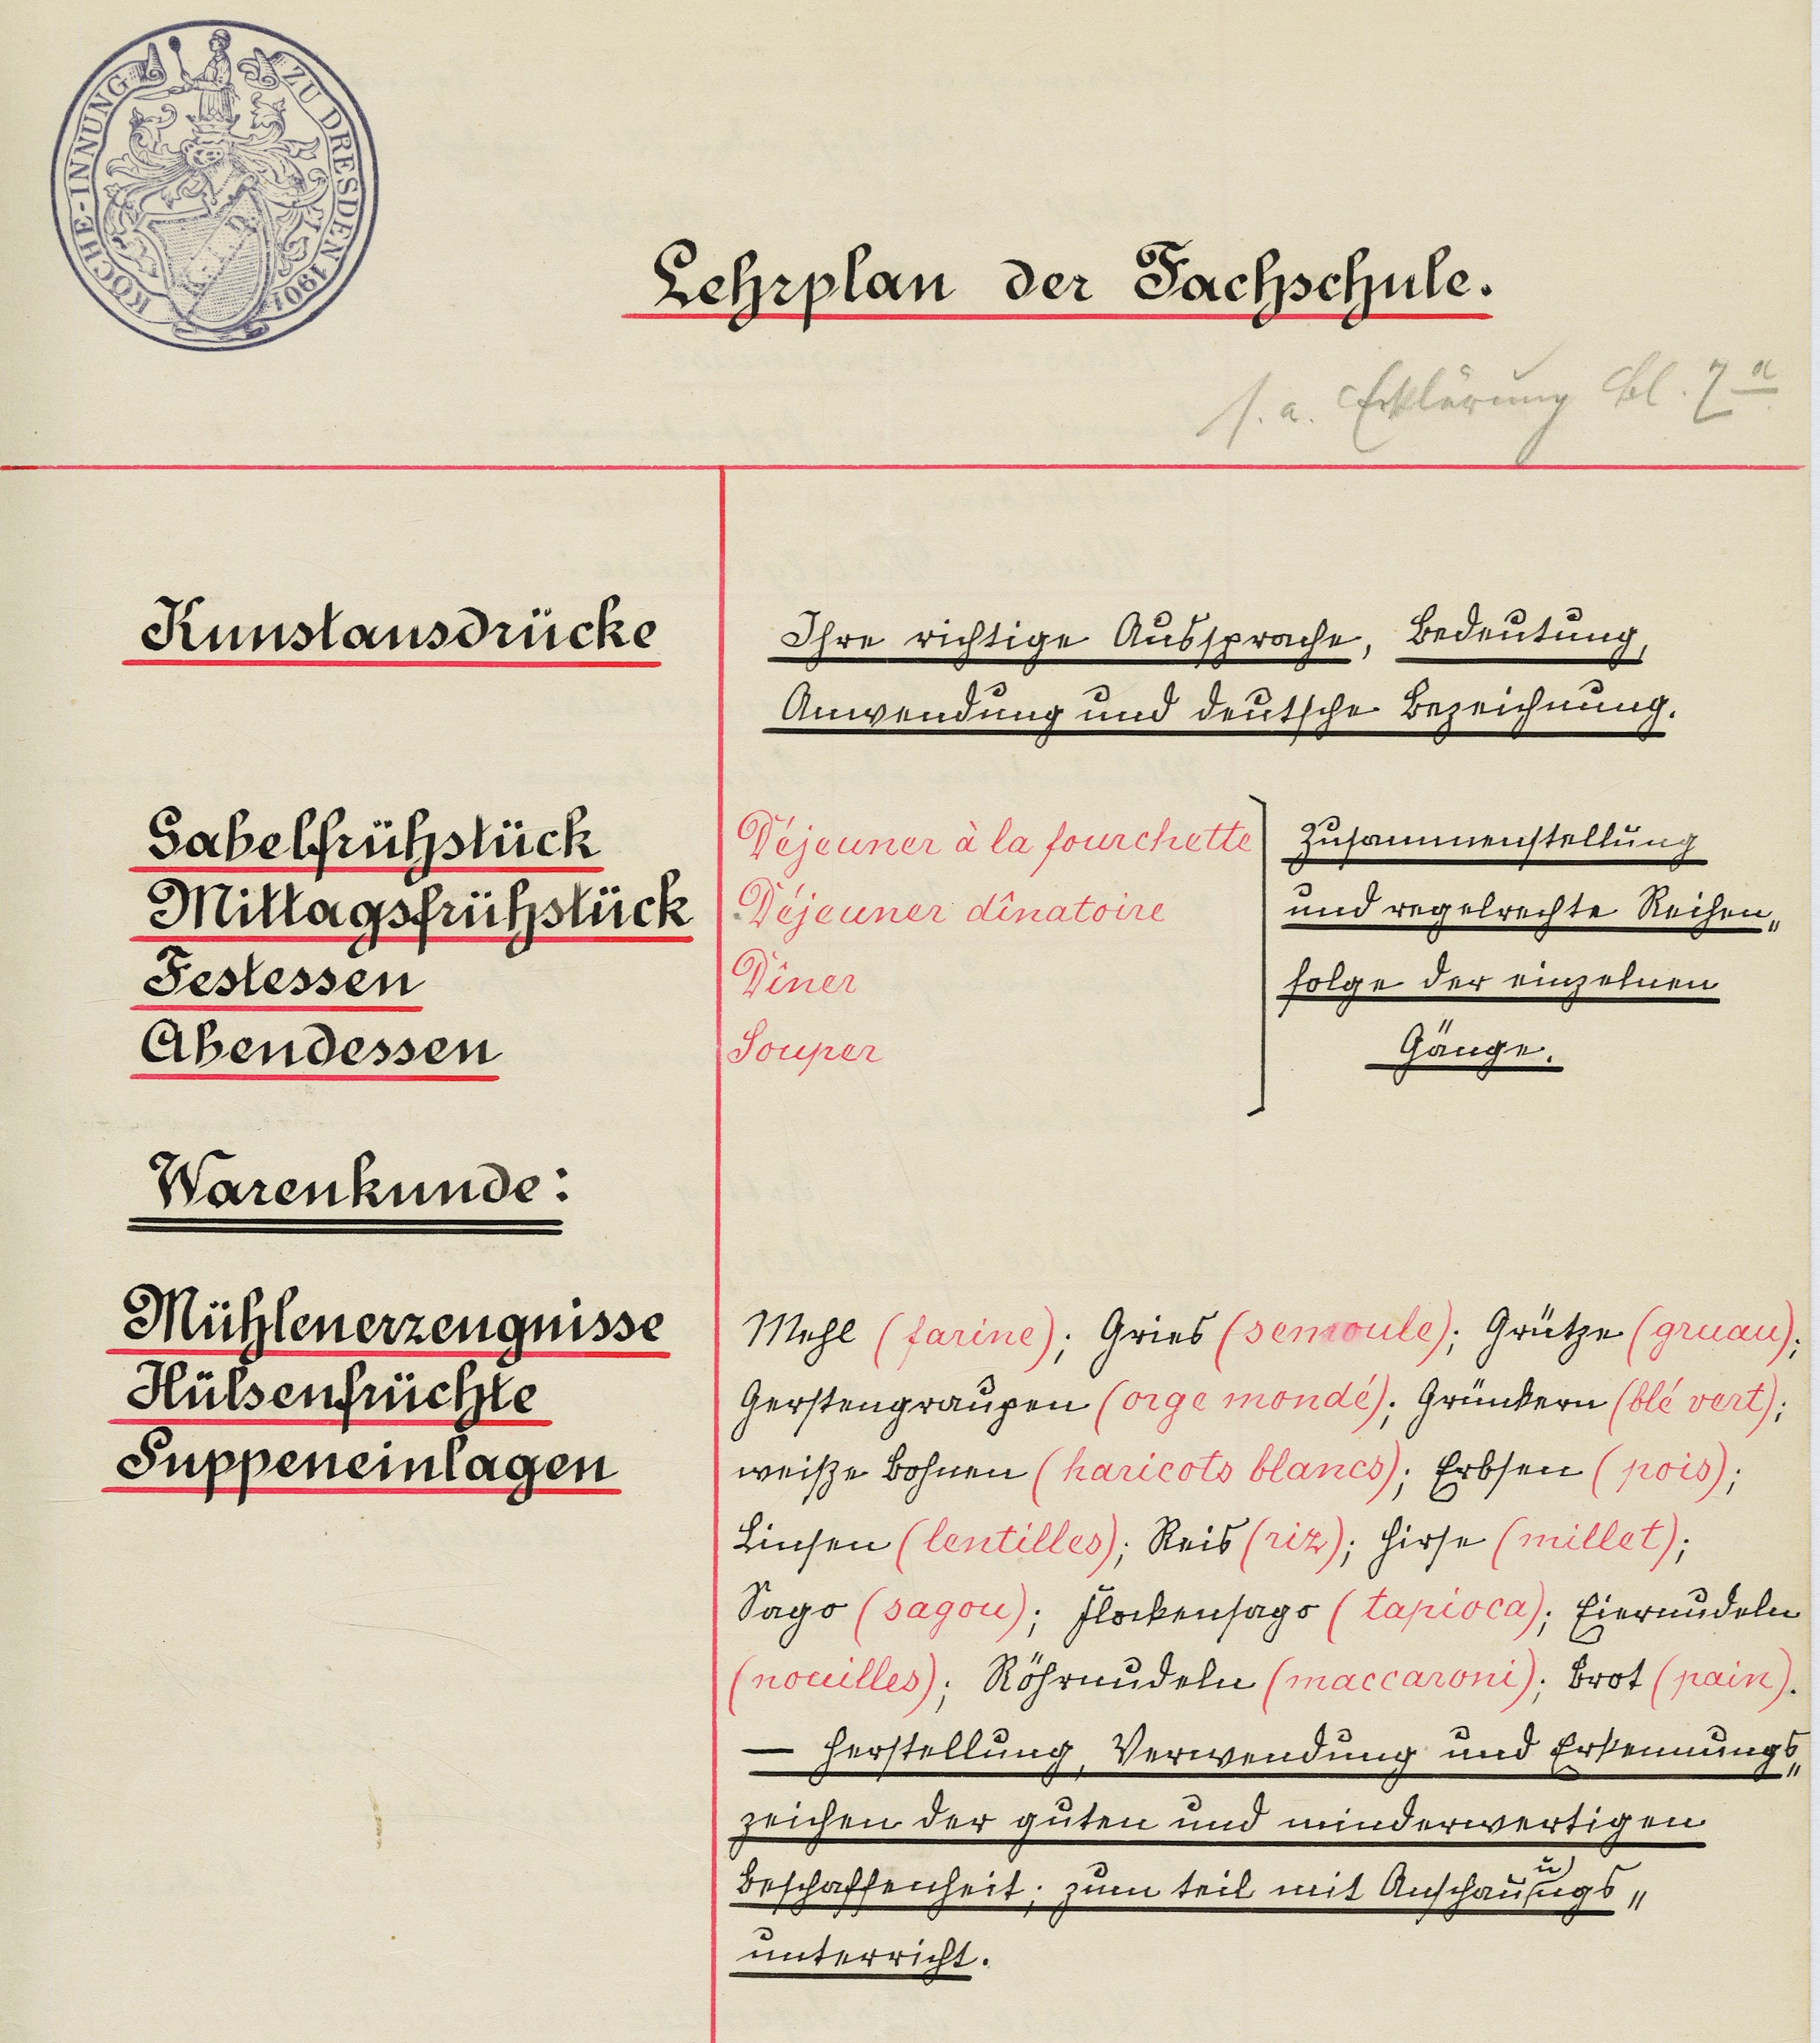 KÖCHE-INNUNG ZU DRESDEN 1901
Lehrplan der Fachschule.
s. a. Erklärung Bl. 7a
Kunstausdrücke
Ihre richtige Aussprache, Bedeutung,
Anwendung und deutsche Bezeichnung.
Gabelfrühstück
Déjeuner à la fourchette
Zusammenstellung
Mittagsfrühstück
Déjeuner dînatoire
und regelrechte Reihen„
Festessen
Dîner
folge der einzelnen
Abendessen
Souper
Gänge.
Warenkunde:
Mühlenerzeugnisse
Mehl (farine); Gries (semoule); Grütze (gruau);
Hülsenfrüchte
Gerstengraupen (orge mondé); Grünkern (blé vert);
Suppeneinlagen
weiße Bohnen (haricots blancs); Erbsen (pois);
Linsen (lentilles); Reis (riz); Hirse (millet);
Sago (sagou); Flockensago (tapioca); Eiernudeln
(nouilles); Röhrnudeln (maccaroni); Brot (pain).
— Herstellung, Verwendung und Erkennungs„
zeichen der guten und minderwertigen
Beschaffenheit; zum teil mit Anschauungs„
unterricht.